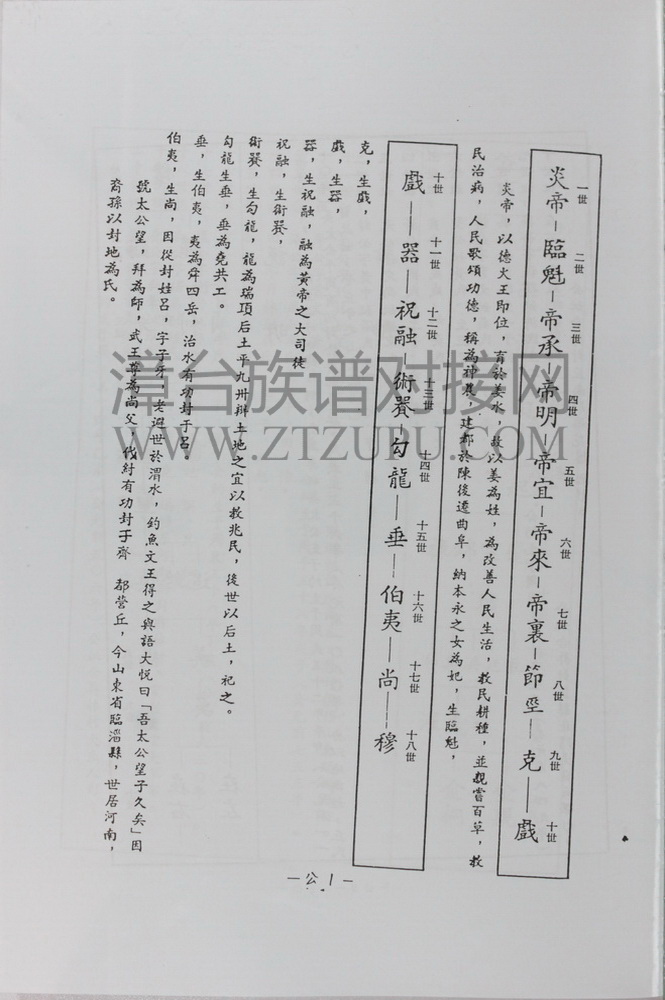 一世 二世 三世 四世 五世 六世 七世 八世 九世 十世
炎帝–臨魁–帝承–帝明 帝宜–帝來–帝裏–節莖–克–戲
炎帝，以德火王即位，育於姜水，故以姜為姓，為改善人民生活，教民耕種，並親嘗百草，救
民治病，人民歌頌功德，稱為神農，建都於陳後遷曲阜，納本永之女為妃，生臨魁，
十世 十一世 十二世 十三世 十四世 十五世 十六世 十七世 十八世
戲–器–祝融–術嚣–勾龍–垂–伯夷–尚–穆
克，生戲，
戲，生器，
器，生祝融，融為黃帝之大司徒
祝融，生術嚣，
術嚣，生勾龍，龍為瑞項后土平九卅辦土地之宜以救兆民，後世以后土，祀之。
勾龍生垂，垂為堯共工。
垂，生伯夷，夷為舜四岳，治水有功封于呂。
伯夷，生尚，因從封姓呂，字子牙，老避世於渭水，釣魚文王得之與語大悅曰「吾太公望子久矣」因
號太公望，拜為師，武王尊為尚父 伐紂有功封于齊 都營丘，今山東省臨淄縣，世居河南，
裔孫以封地為氏。
–公1–
漳台族谱对接网
WWW.ZTZUPU.COM